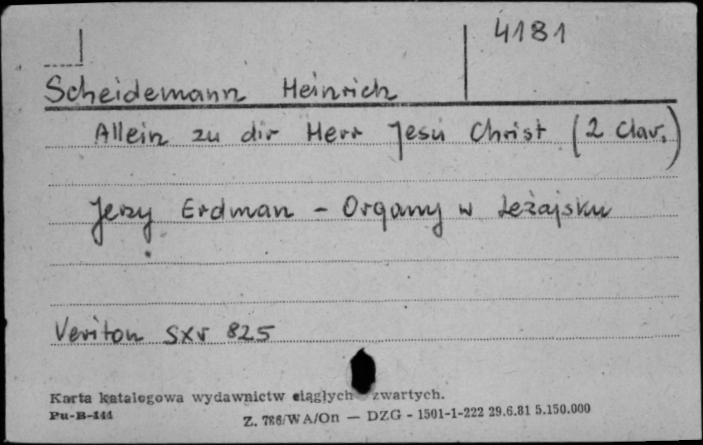 4181
Scheidemann Heinrich
Allein zu dir Herr Jesu Christ (2 Clav.)
Jerzy Erdman – Organy w Leżajsku
Veriton SXV 825
Karta katalogowa wydawnictw ciągłych zwartych.
Pu-B-144
Z. 786/WA/On — DZG - 1501-1-222 29.6.81 5.150.000